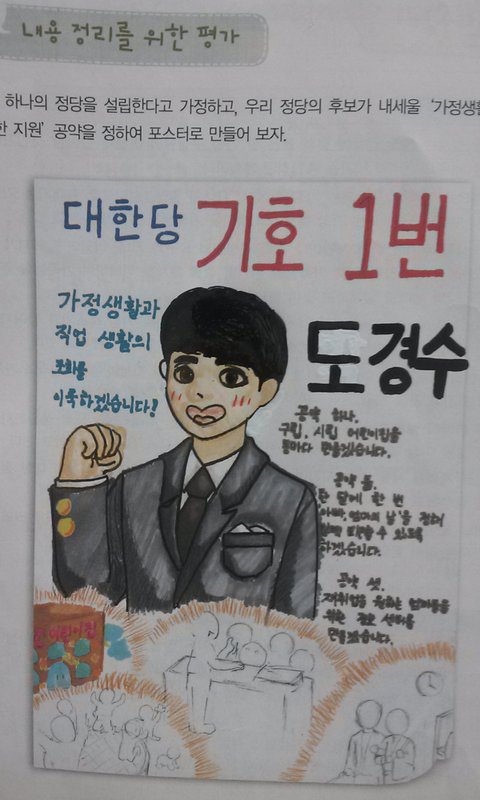 내용 정리를 위한 평가
하나의 정당을 설립한다고 가정하고, 우리 정당의 후보가 내세울 '가정생활
한 지원' 공약을 정하여 포스터로 만들어 보자.
대한당 기호 1번
가정생활과
직업 생활의
조화를
이룩하겠습니다!
도경수
공약 하나,
구립, 시립 어린이집을
동마다 만들겠습니다.
공약 둘,
한 달에 한 번
아빠, 엄마의 날'을 정하여
일찍 퇴근할 수 있도록
하겠습니다.
공약 셋,
재취업을 원하는 엄마들을
위한 정보 센터를
만들겠습니다.
어린이집